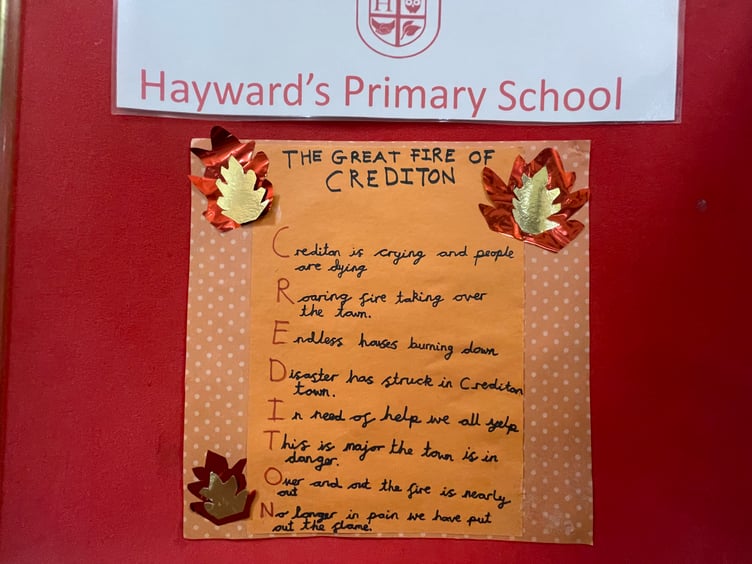 H
Hayward's Primary School
THE GREAT FIRE OF
CREDITON
Crediton is crying and people
are dying
Roaring fire taking over
the town.
Endless houses burning down
Disaster has struck in Crediton
town.
In need of help we all yelp
This is major the town is in
danger.
Over and out the fire is nearly
out
No longer in pain we have put
out the flame.